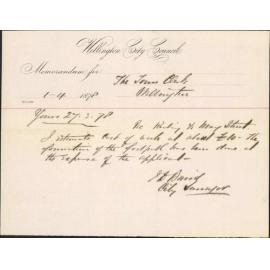 Wellington City Council
Memorandum for
The Town Clerk
1-4 1898
Wellington
Yours 27.3.98
Re Kerbing &
Street
I estimate cost of work at about £
The
formation of the footpath has been done at
the expense of the applicant
City Surveyor